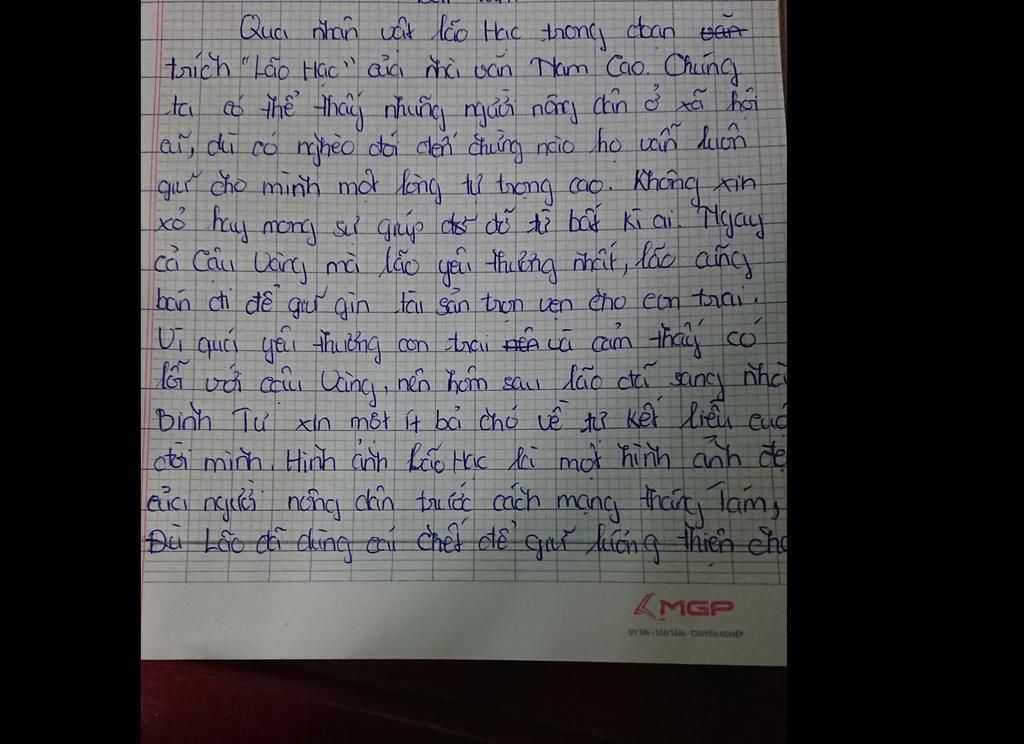 Qua nhân vật lão Hạc trong đoạn văn
trích "Lão Hạc" của nhà văn Nam Cao. Chúng
ta có thể thấy những người nông dân ở xã hội
ấy, dù có nghèo đói đến chừng nào họ vẫn luôn
giữ cho mình một lòng tự trọng cao. Không xin
xỏ hay mong sự giúp đỡ từ bất kì ai. Ngay
cả Cậu Vàng mà lão yêu thương nhất, lão cũng
bán đi để giữ gìn tài sản trọn vẹn cho con trai.
Vì quá yêu thương con trai nên và cảm thấy có
lỗi với cậu Vàng, nên hôm sau lão đã sang nhà
Binh Tư xin một ít bả chó về tự kết liễu cuộ
đời mình. Hình ảnh Lão Hạc là một hình ảnh đẹ
của người nông dân trước cách mạng tháng Tám,
Dù Lão đã dùng cái chết để giữ lương thiện cho
MGP
UY TÍN - TẬN TÂM - CHUYÊN NGHIỆP